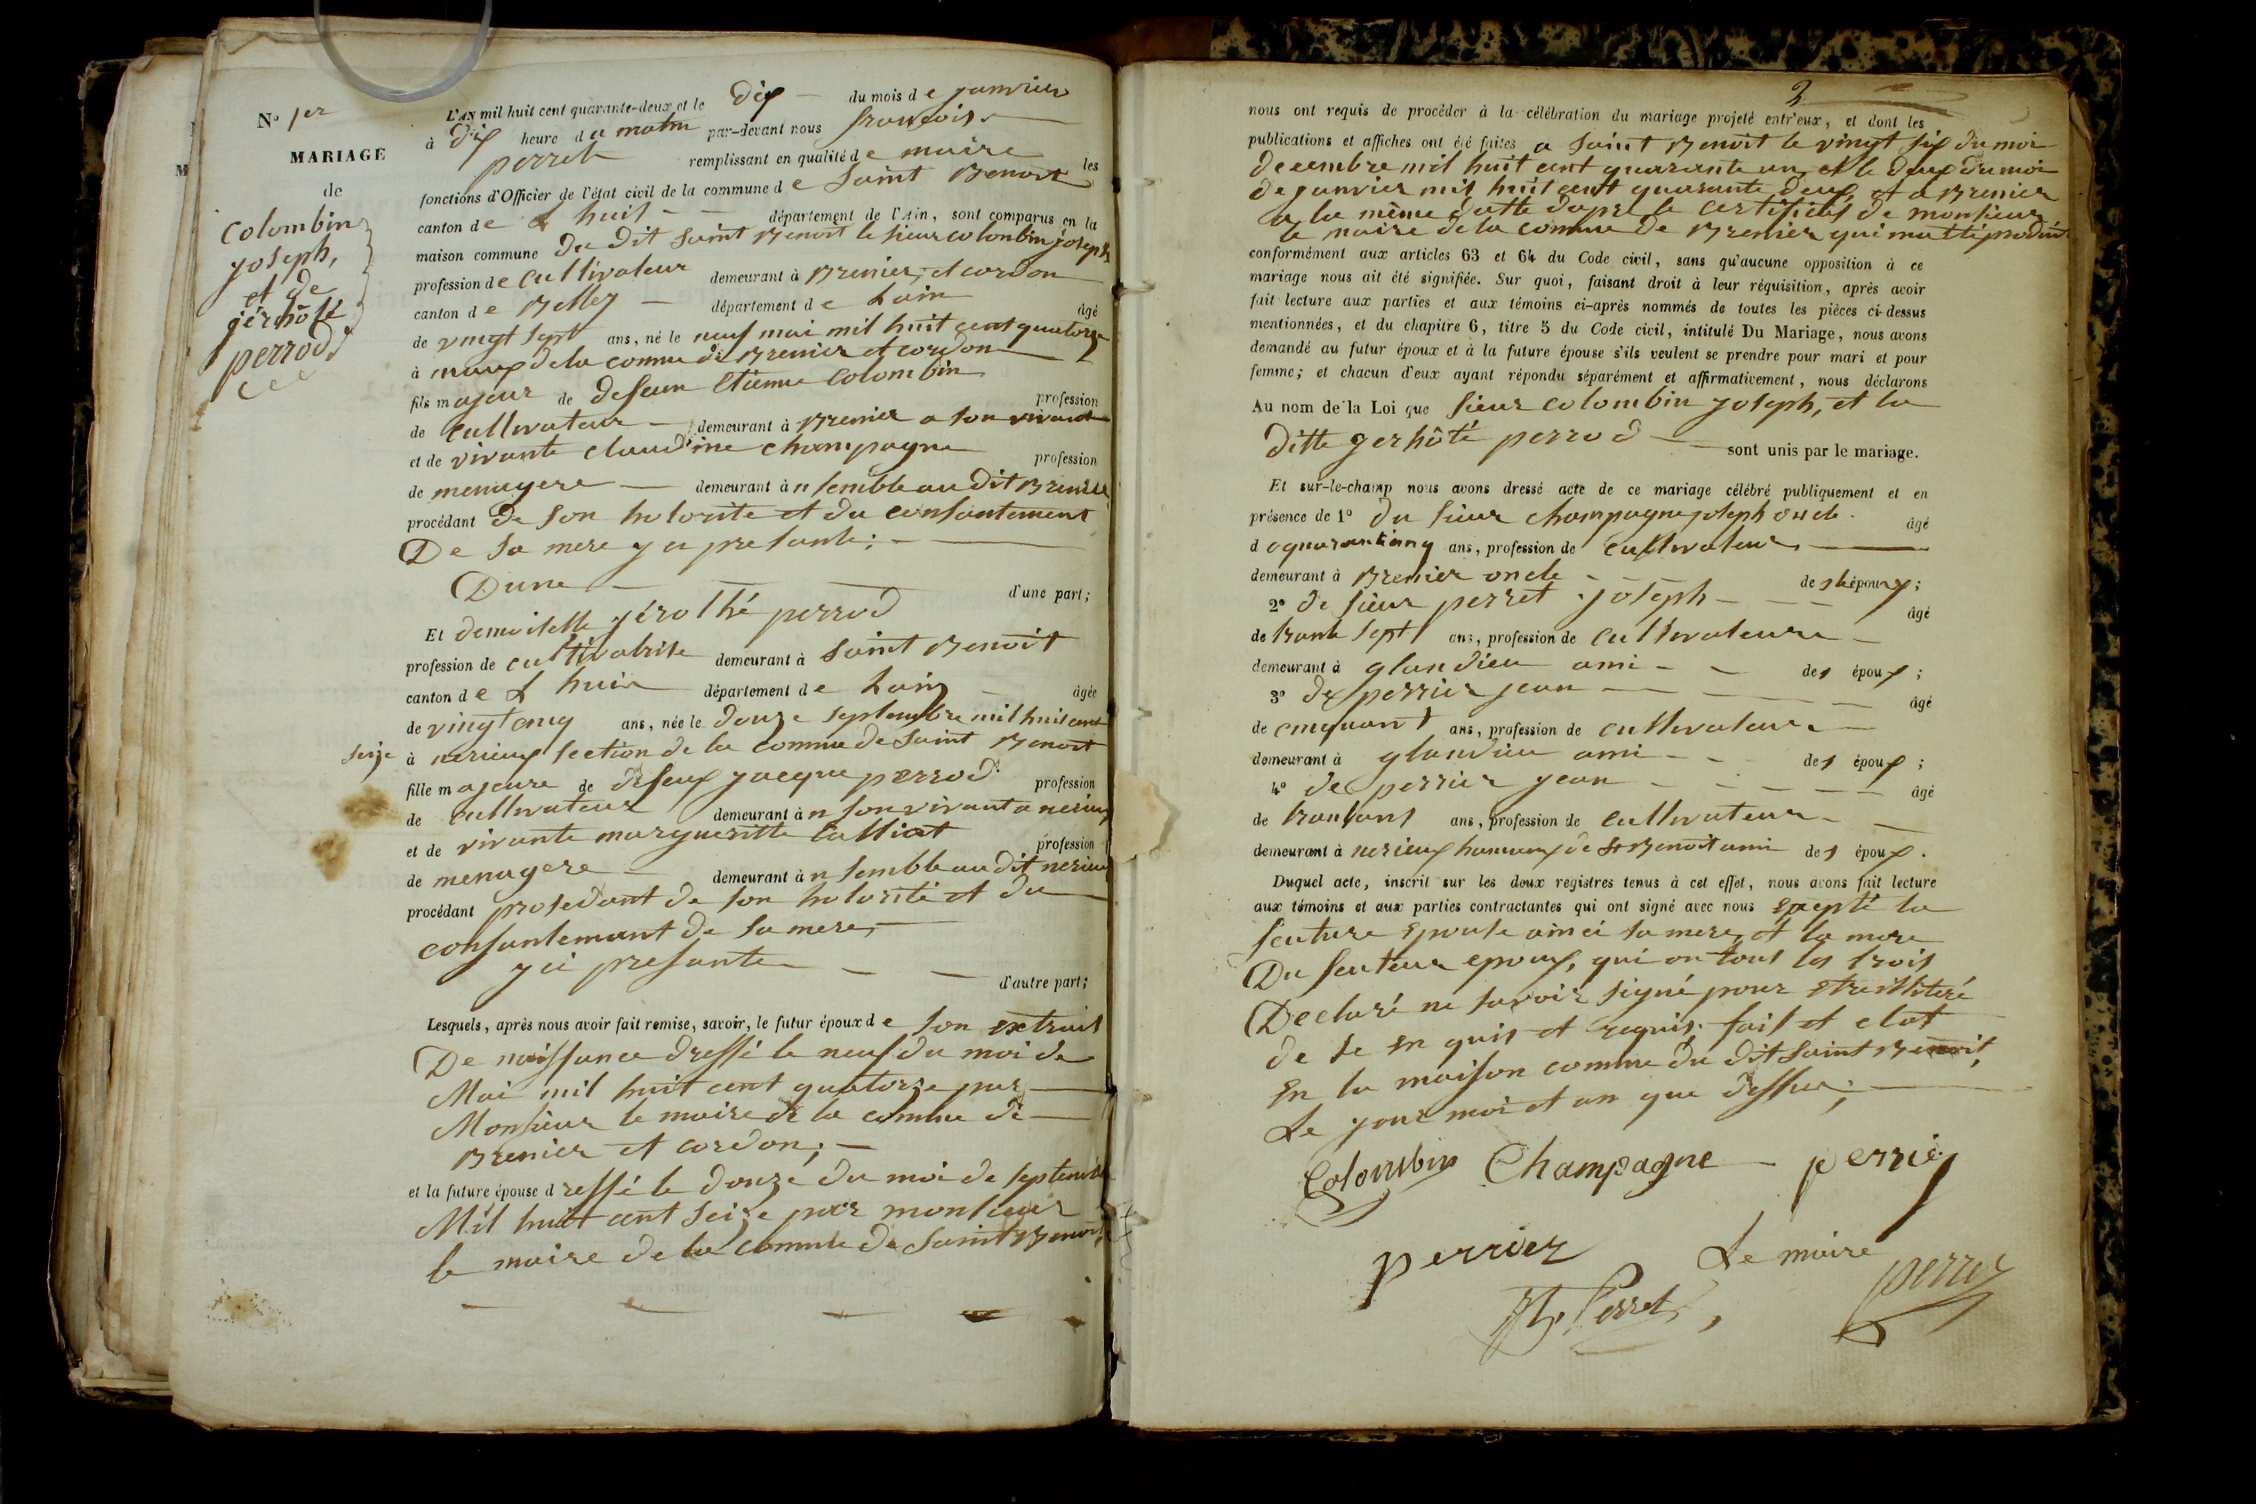 N° 1er
MARIAGE
de
Colombin
joseph,
et de
jérhôté
perrod.
L'AN mil huit cent quarante-deux et le dix du mois de janvier
à Dix heure du matin par-devant nous françois
perret remplissant en qualité de maire les
fonctions d'Officier de l'état civil de la commune de Saint Benoit
canton de L huis département de l'Ain, sont comparus en la
maison commune du dit Saint Benoit le sieur colombin joseph
profession de cultivateur demeurant à Brenier, et cordon
canton de Belley département de Lain âgé
de vingt sept ans, né le neuf mai mil huit cent quatorze
à de la comune de Brenier et cordon
fils majeur de defeun Etienne Colombin profession
de cultivateur demeurant à Brenier a son vivant
et de vivante claudine champagne profession
de menagere demeurant àn semble au dit Brenier
procédant de son hotorite et du consantement
De sa mere y ci presante;
Dune d'une part;
Et demoiselle jérothé perrod
profession de cultivatrise demeurant à Saint Benoit
canton de L huis département de Lain âgée
de vingt cinq ans, née le douze septembre mil huit cent
seize à nerieux section de la comune de Saint Benoit
fille majeure de defeux jacque perrod profession
de cultivateur demeurant àn son vivant a nerieux
et de vivante margueritte Calliat profession
de menagere demeurant àn semble au dit nerieux
procédant prosedant de son hotorité et du
consantemant de sa mere,
y ci presante d'autre part;
Lesquels, après nous avoir fait remise, savoir, le futur époux de son extrait
De naissance dressé le neuf du moi de
Mai mil huit cent quatorze par
Monsieur le maire de la comune de
Brenier et cordon;
et la future épouse dressé le douze du moi de septembre
Mil huit cent seize par monsieur
le maire de la comune de Saint Benoit,
2
nous ont requis de procéder à la célébration du mariage projeté entr'eux, et dont les
publications et affiches ont été faites a Saint Benoit le vingt six du moi
decembre mil huit cent quarante un et le deux du moi
de janvier mil huit cent quarante deux, et a Brenier
a la même datte dapre le certificat de monsieur
le maire de la comune de Brenier qui
conformément aux articles 63 et 64 du Code civil, sans qu'aucune opposition à ce
mariage nous ait été signifiée. Sur quoi, faisant droit à leur réquisition, après avoir
fait lecture aux parties et aux témoins ci-après nommés de toutes les pièces ci-dessus
mentionnées, et du chapitre 6, titre 5 du Code civil, intitulé Du Mariage, nous avons
demandé au futur époux et à la future épouse s'ils veulent se prendre pour mari et pour
femme; et chacun d'eux ayant répondu séparément et affirmativement, nous déclarons
Au nom de la Loi que sieur colombin joseph, et la
ditte jerhôté perrod sont unis par le mariage.
Et sur-le-champ nous avons dressé acte de ce mariage célébré publiquement et en
présence de 1° du sieur champagne joseph oncle. âgé
d ans, profession de cultivateur
demeurant à Brenier oncle de l époux;
2° de sieur perret joseph âgé
de trante sept ans, profession de cultivateure
demeurant à glandieu ami des époux;
3° de perrier jean âgé
de cinquant ans, profession de cultivateur
demeurant à glandieu ami des époux;
4° de perrier jean âgé
de ans, profession de cultivateur
demeurant à nerieux hameux de St Benoit ami des époux.
Duquel acte, inscrit sur les deux registres tenus à cet effet, nous avons fait lecture
aux témoins et aux parties contractantes qui ont signé avec nous excepté la
feuture Epouse ainci sa mere, et la mere
Du feuteur epoux, qui on tous les trois
Declaré ne savoir signé pour etre illiteré
de ce en quis et requis. fait et clot
En la maison comune du dit Saint Benoit,
Le jour moi et an que dessus;
Colombin Champagne perrier
perrier Le maire
Jh. Perret, perret